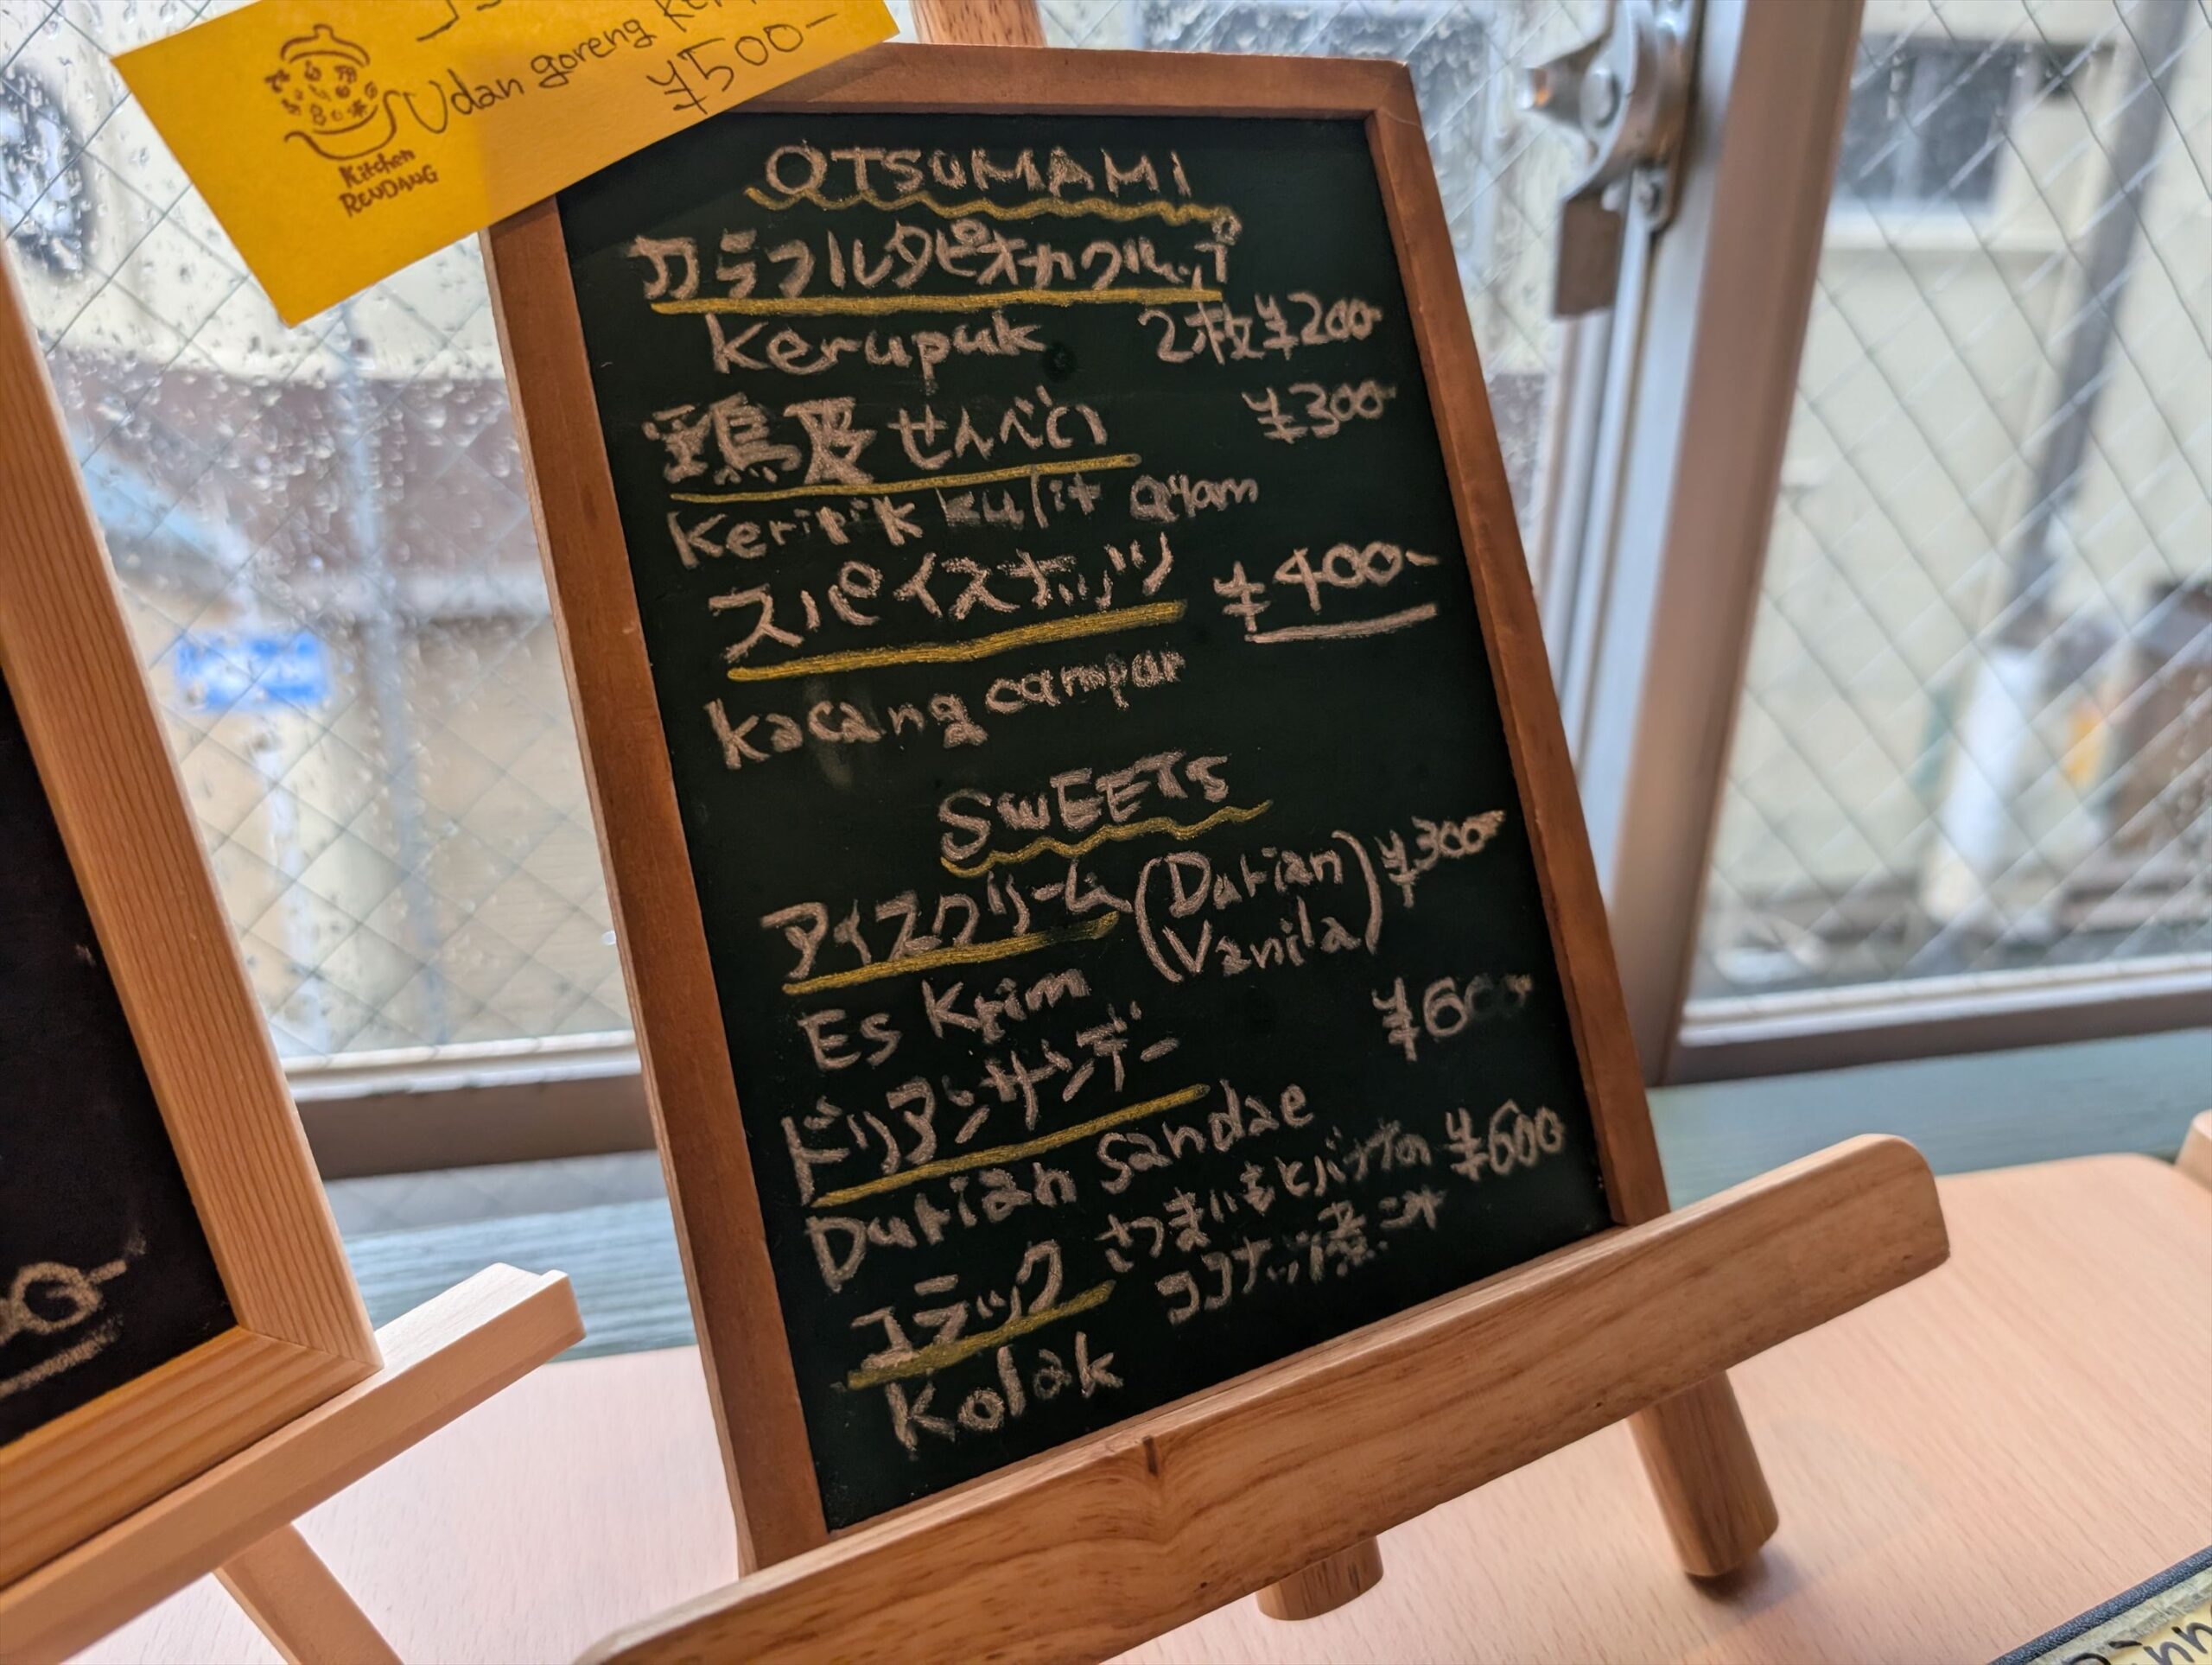 Udan goreng
¥500-
Kitchen
RENDANG
OTSUMAMI
カラフルタピオカクルップ
Kerupuk 2枚¥200-
鶏皮せんべい ¥300-
Keripik kulit Ayam
スパイスナッツ ¥400-
kacang campur
SWEETS
アイスクリーム (Durian Vanila) ¥300-
Es Krim
ドリアンサンデー ¥600
Durian Sandae
コラック さつまいもとバナナの ¥600
ココナッツ煮
Kolak